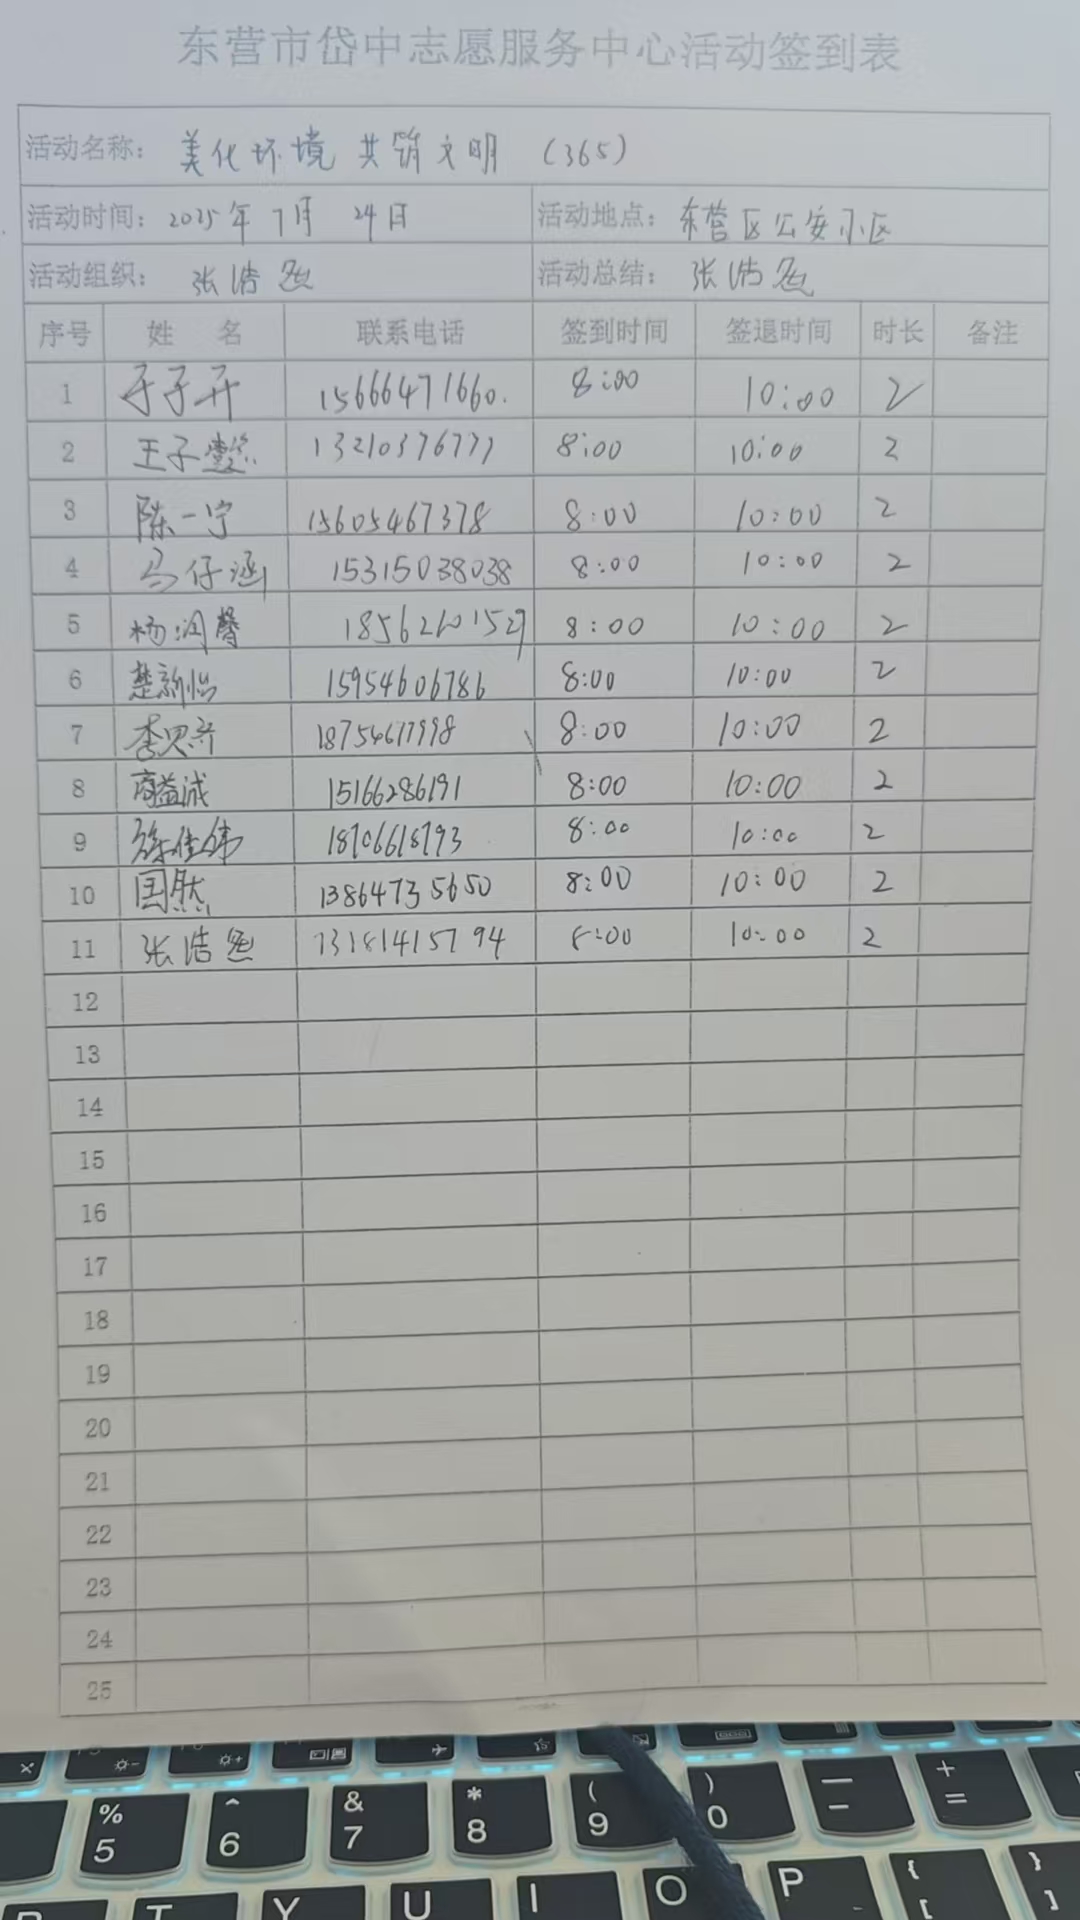 东营市岱中志愿服务中心活动签到表
活动名称: 美化环境 共筑文明 (365)
活动时间: 2025年7月 24日 活动地点: 东营区公安小区
活动组织: 张浩 活动总结: 张浩
序号 姓 名 联系电话 签到时间 签退时间 时长 备注
1 于子开 15666471660. 8:00 10:00 2
2 王子懿 13210376777 8:00 10:00 2
3 陈一宁 15605467378 8:00 10:00 2
4 马仔涵 15315038038 8:00 10:00 2
5 杨润馨 18562601529 8:00 10:00 2
6 楚新怡 15954606786 8:00 10:00 2
7 李思齐 8:00 10:00 2
8 商益诚 15166286191 8:00 10:00 2
9 徐佳伟 18706618793 8:00 10:00 2
10 国然 13864735650 8:00 10:00 2
11 张浩 8:00 10:00 2
12
13
14
15
16
17
18
19
20
21
22
23
24
25
% ^ & * ( ) — +
5 6 7 8 9 0 - =
R T Y U I O P { [ } ]